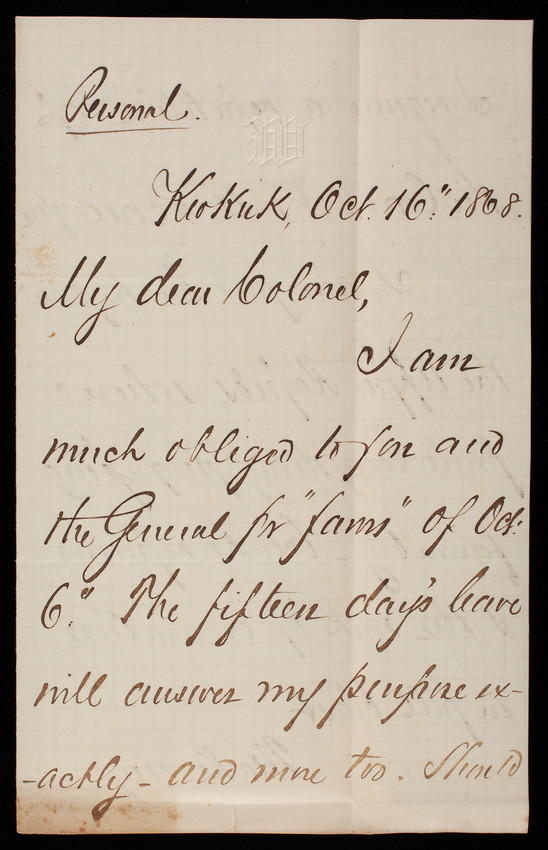 Personal.
Keokuk, Oct. 16." 1868.
My dear Colonel,
I am
much obliged to you and
the General for "favors" of Oct.
6." The fifteen day's leave
will answer my purpose ex-
-actly - and more too. Should